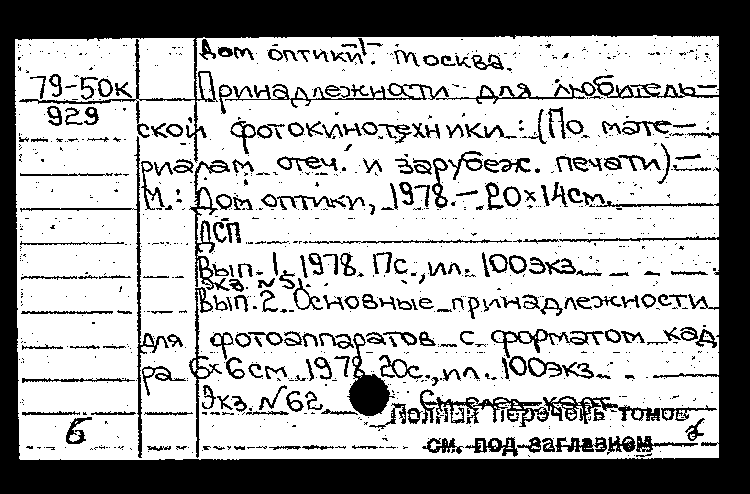 Дом оптики. Москва.
79-50к Принадлежности для любитель-
929
ской фотокинотехники: (По мате-
риалам отеч. и зарубеж. печати)-
М.: Дом оптики, 1978.-20×14см.
ДСП
Вып. 1. 1978. 17с., ил. 100экз.
Экз. №51.
Вып. 2. Основные принадлежности
для фотоаппаратов с форматом кад
ра 6×6см. 1978. 20с., ил. 100экз.
Экз. №62. См. след. карт.
Полный перечень томов
б см. под заглавием